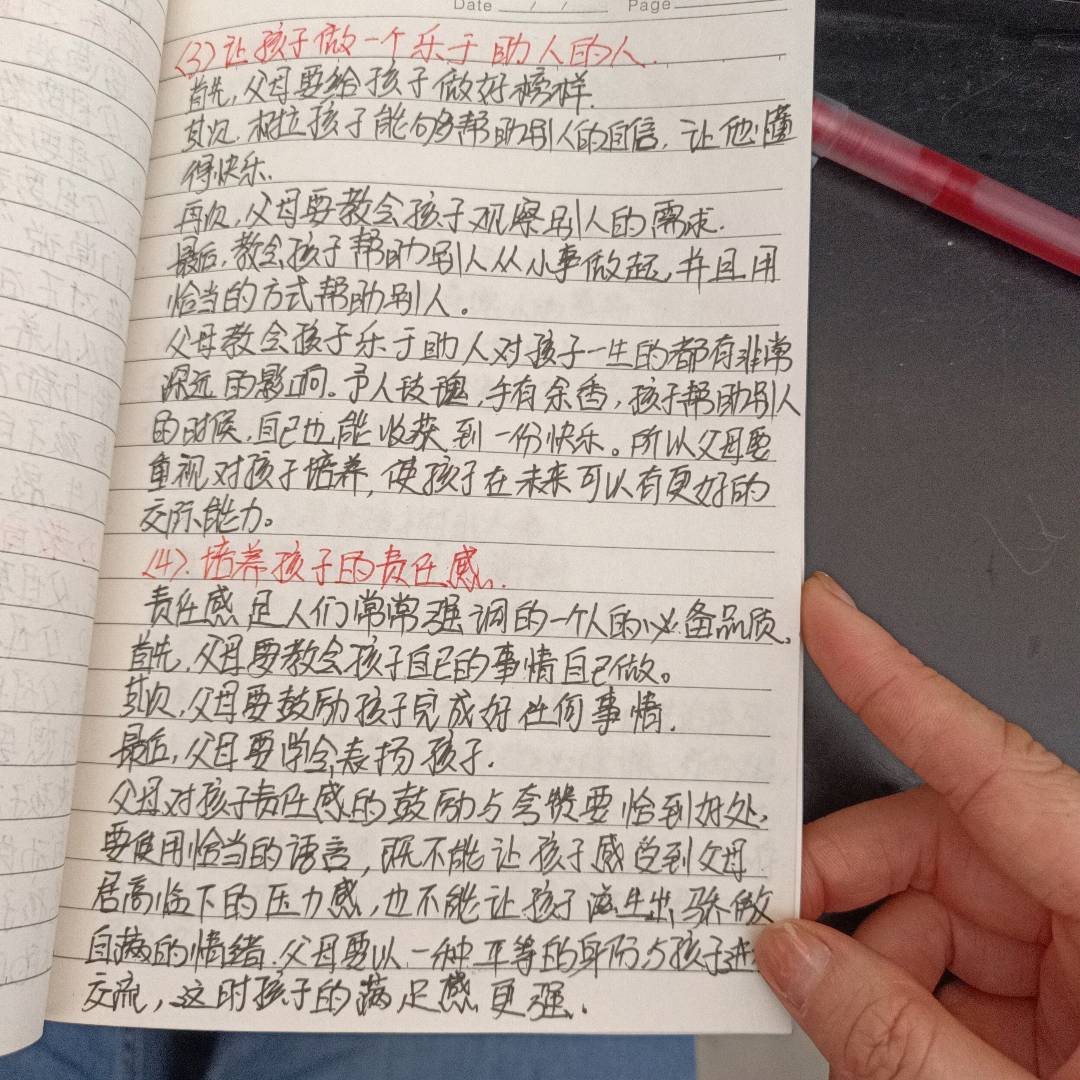 Date / / Page
(3) 让孩子做一个乐于助人的人.
首先,父母要给孩子做好榜样.
其次,树拉孩子能够帮助别人的自信,让他懂
得快乐.
再次,父母要教会孩子观察别人的需求.
最后,教会孩子帮助别人从小事做起,并且用
恰当的方式帮助别人。
父母教会孩子乐于助人对孩子一生的都有非常
深远的影响。予人玫瑰,手有余香,孩子帮助别人
的时候,自己也能收获到一份快乐。所以父母要
重视对孩子培养,使孩子在未来可以有更好的
交际能力。
(4).培养孩子的责任感.
责任感是人们常常强调的一个人的必备品质,
首先,父母要教会孩子自己的事情自己做。
其次,父母要鼓励孩子完成好任何事情.
最后,父母要学会表扬孩子.
父母对孩子责任感的鼓励与夸赞要恰到好处,
要使用恰当的语言,既不能让孩子感受到父母
居高临下的压力感,也不能让孩子滋生出骄傲
自满的情绪.父母要以一种平等的身份与孩子进
交流,这时孩子的满足感更强.